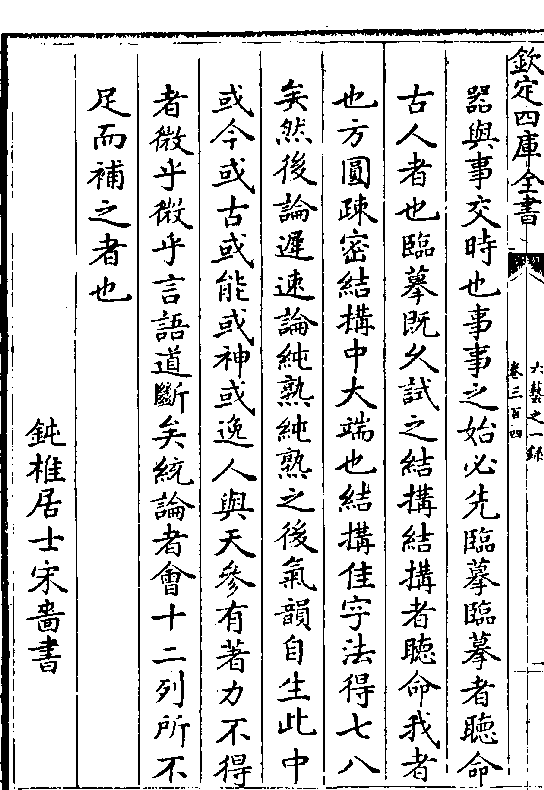 欽定四庫全書
六藝之一錄
卷三百四
器與事交時也事事之始必先臨摹臨摹者聽命
古人者也臨摹既久試之結搆結搆者聽命我者
也方圓疎密結搆中大端也結搆佳字法得七八
矣然後論遲速論純熟純熟之後氣韻自生此中
或今或古或能或神或逸人與天參有著力不得
者微乎微乎言語道斷矣統論者會十二列所不
足而補之者也
鈍椎居士宋嗇書